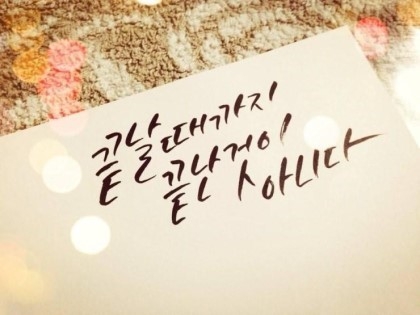 끝날때까지
끝난것이
아니다